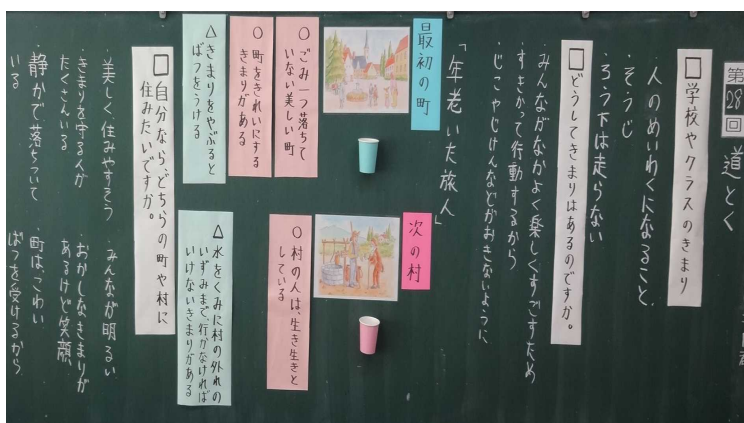 第28回 道とく
□学校やクラスのきまり
人のめいわくになること、
・そうじ
・ろう下は走らない
□どうしてきまりはあるのですか。
・みんながなかよく楽しくすごすため
・すきかって行動するから
・じこやじけんなどがおきないように
「年老いた旅人」
最初の町
○ごみ一つ落ちて
いない美しい町
○町をきれいにする
きまりがある
△きまりをやぶると
ばつをうける
次の村
○村の人は、生き生きと
している
△水をくみに村の外れの
いずみまで、行かなければ
いけないきまりがある
□自分なら、どちらの町や村に
住みたいですか。
・美しく、住みやすそう
・きまりを守る人が
たくさんいる
・静かで落ちついて
いる
・みんなが明るい
・おかしなきまりが
あるけど笑顔
・町は、こわい
ばつを受けるから